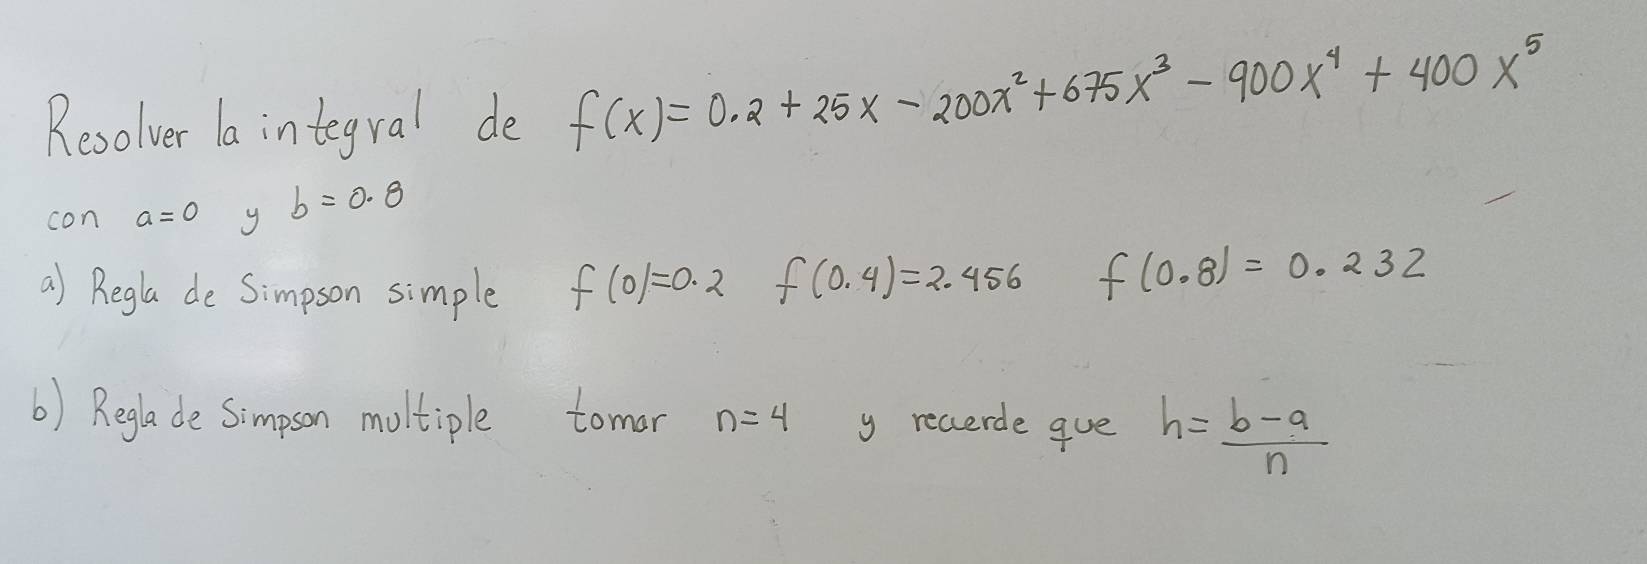 Resolver la integral de f(x)= 0.2 + 25x - 200x² + 675x³ - 900x⁴ + 400x⁵
con a=0 y b=0.8
a) Regla de Simpson simple f(0)=0.2 f(0.4)=2.456 f(0.8)=0.232
b) Regla de Simpson multiple tomar n=4 y recuerde que h= b-a/n